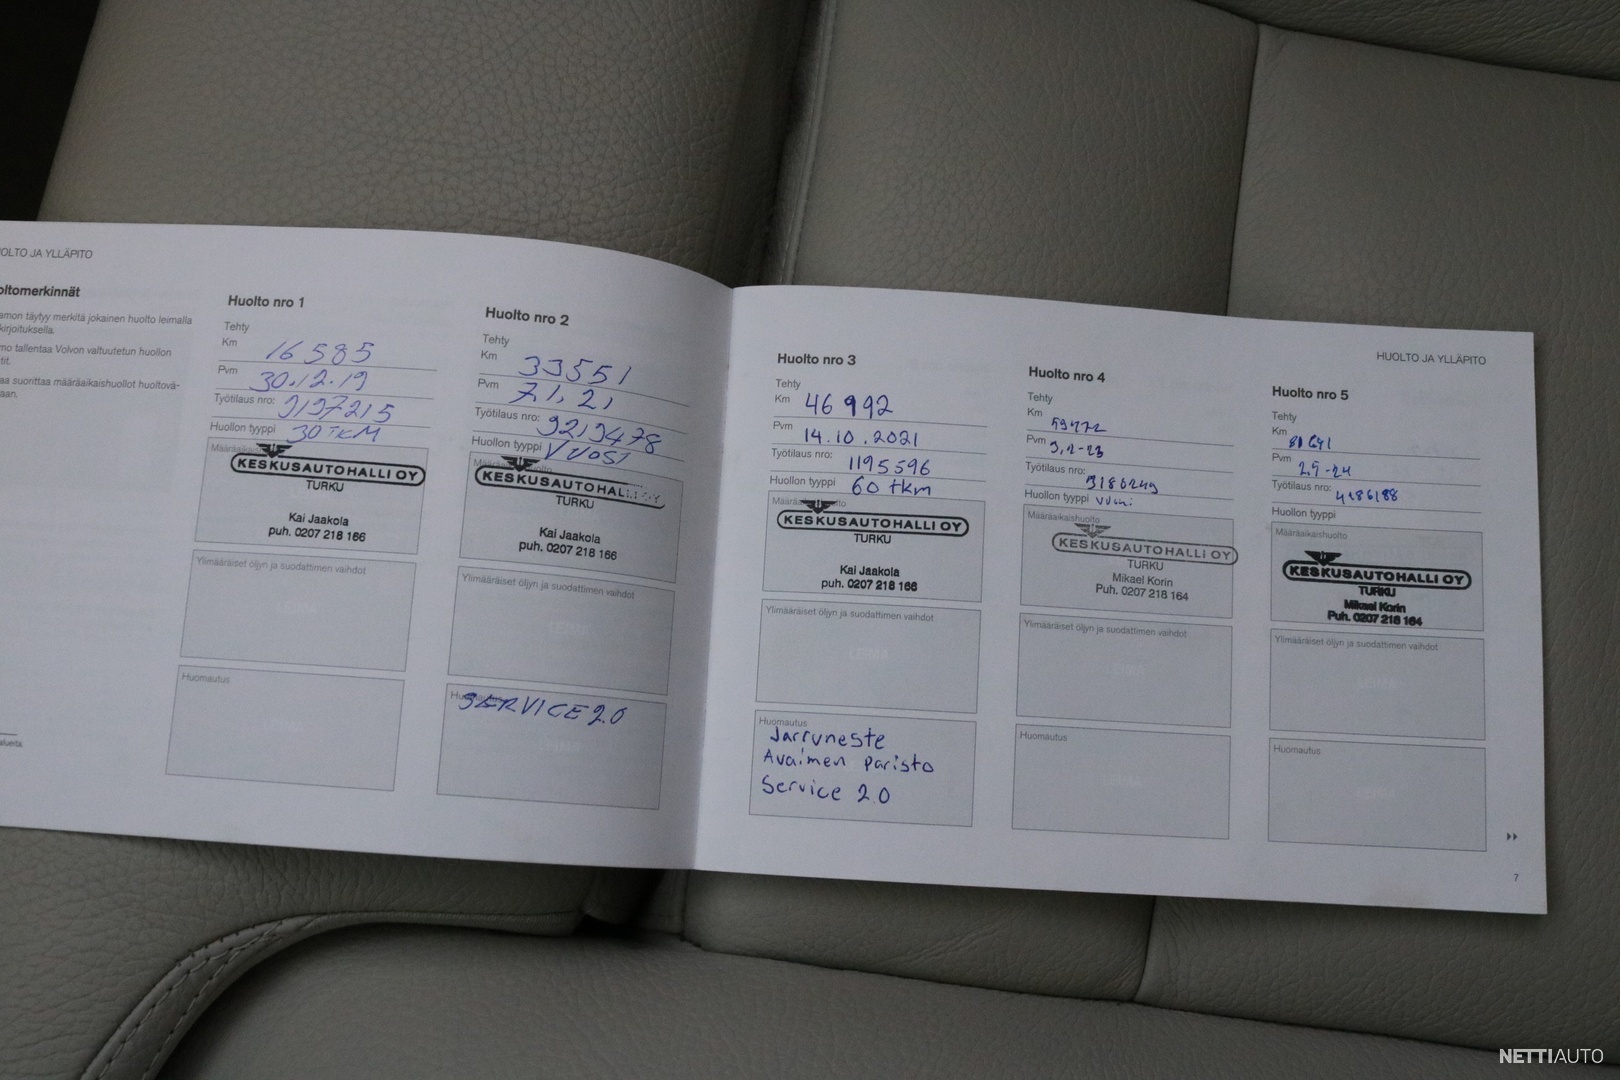 OLTO JA YLLÄPITO
oltomerkinnät
amon täytyy merkitä jokainen huolto leimalla
kirjoituksella.
mo tallentaa Volvon valtuutetun huollon
tit.
aa suorittaa määräaikaishuollot huoltovä-
aan.
Huolto nro 1
Tehty
Km 16585
Pvm 30.12.19
Työtilaus nro: 9197215
Huollon tyyppi 30TKM
KESKUSAUTOHALLI OY
TURKU
Kai Jaakola
puh. 0207 218 166
Ylimääräiset öljyn ja suodattimen vaihdot
LEIMA
Huomautus
Huolto nro 2
Tehty
Km 33551
Pvm 7.1.21
Työtilaus nro: 9219478
Huollon tyyppi
KESKUSAUTOHALLI OY
TURKU
Kai Jaakola
puh. 0207 218 166
Ylimääräiset öljyn ja suodattimen vaihdot
LEIMA
SERVICE 2.0
HUOLTO JA YLLÄPITO
Huolto nro 3
Tehty
Km 46992
Pvm 14.10.2021
Työtilaus nro: 1195596
Huollon tyyppi 60 tkm
KESKUSAUTOHALLI OY
TURKU
Kai Jaakola
puh. 0207 218 166
Ylimääräiset öljyn ja suodattimen vaihdot
LEIMA
Huomautus
Jarruneste
Avaimen paristo
Service 2.0
Huolto nro 4
Tehty
Km
Pvm
Työtilaus nro: 3186249
Huollon tyyppi
Määräaikaishuolto
KESKUSAUTOHALLI OY
TURKU
Mikael Korin
Puh. 0207 218 164
Ylimääräiset öljyn ja suodattimen vaihdot
Huomautus
Huolto nro 5
Tehty
Km
Pvm
Työtilaus nro: 4186188
Huollon tyyppi
Määräaikaishuolto
KESKUSAUTOHALLI OY
TURKU
Mikael Korin
Puh. 0207 218 164
Ylimääräiset öljyn ja suodattimen vaihdot
Huomautus
7
NETTIAUTO